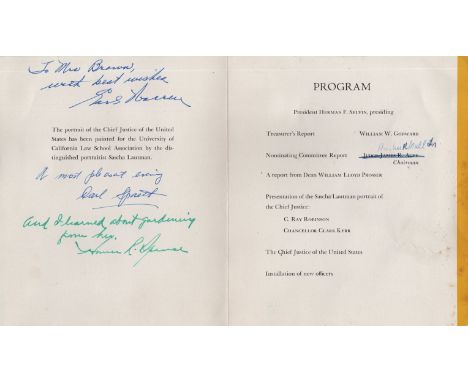 To Mrs Brown,
with best wishes
Earl Warren
The portrait of the Chief Justice of the United
States has been painted for the University of
California Law School Association by the dis-
tinguished portraitist Sascha Lautman.
A most pleasant evening
Carl
And I learned about gardening
from her.
PROGRAM
President Herman F. Selvin, presiding
Treasurer's Report William W. Godward
Nominating Committee Report
Chairman
A report from Dean William Lloyd Prosser
Presentation of the Sascha Lautman portrait of
the Chief Justice:
C. Ray Robinson
Chancellor Clark Kerr
The Chief Justice of the United States
Installation of new officers